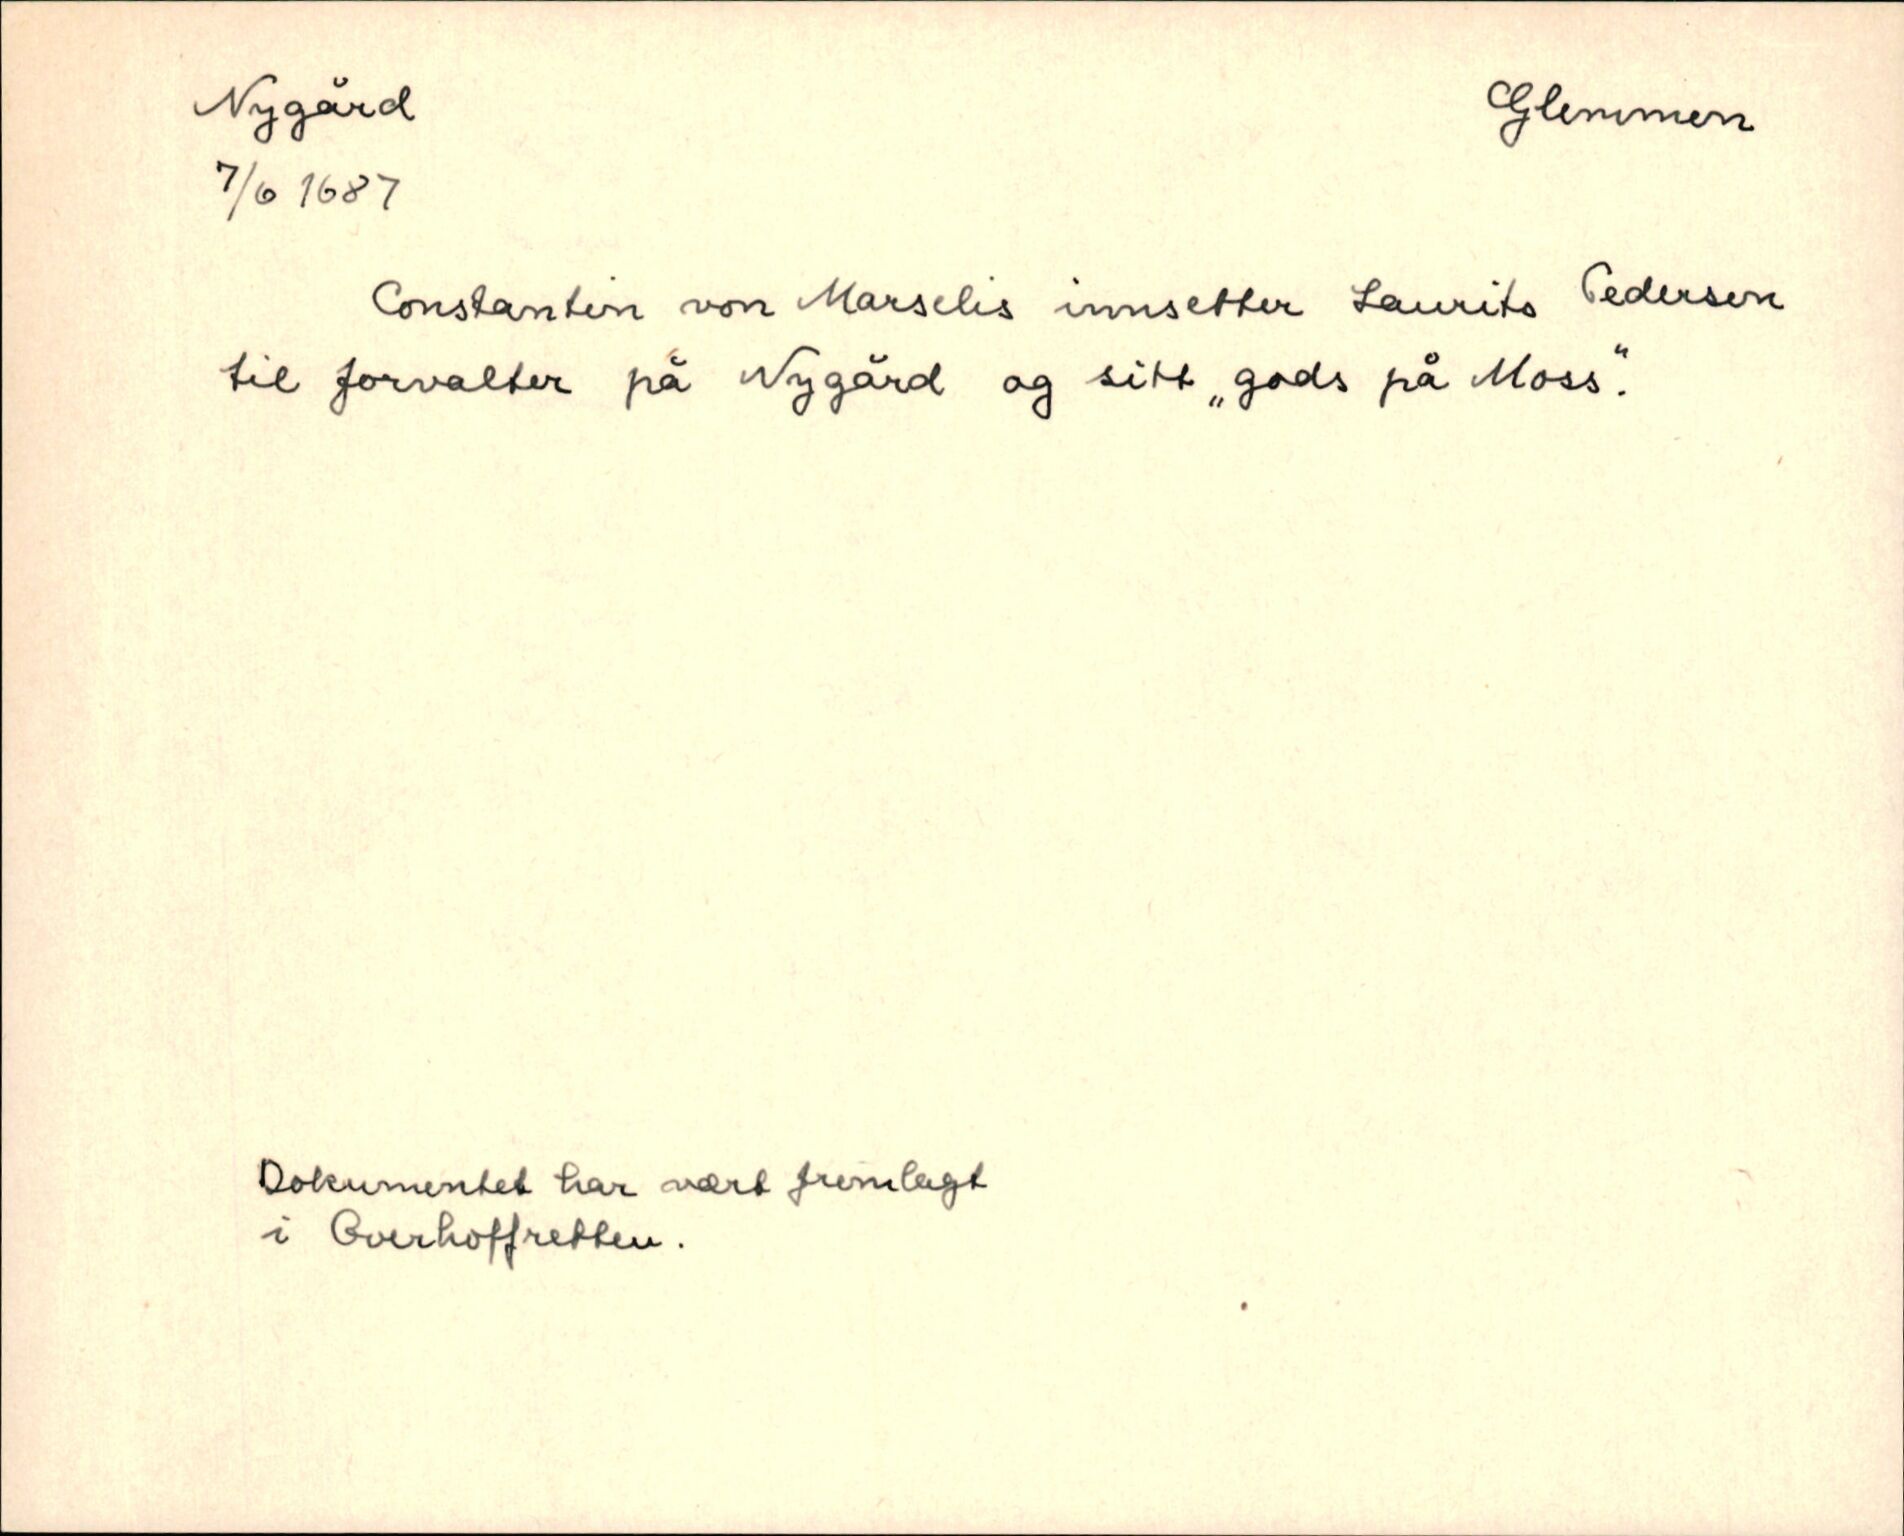 Nygård
Glemmen
7/6 1687
Constantin von Marselis innsetter Laurits Pedersen
til forvalter på Nygård og sitt „gods på Moss“.
Dokumentet har vært fremlagt
i Overhoffretten.